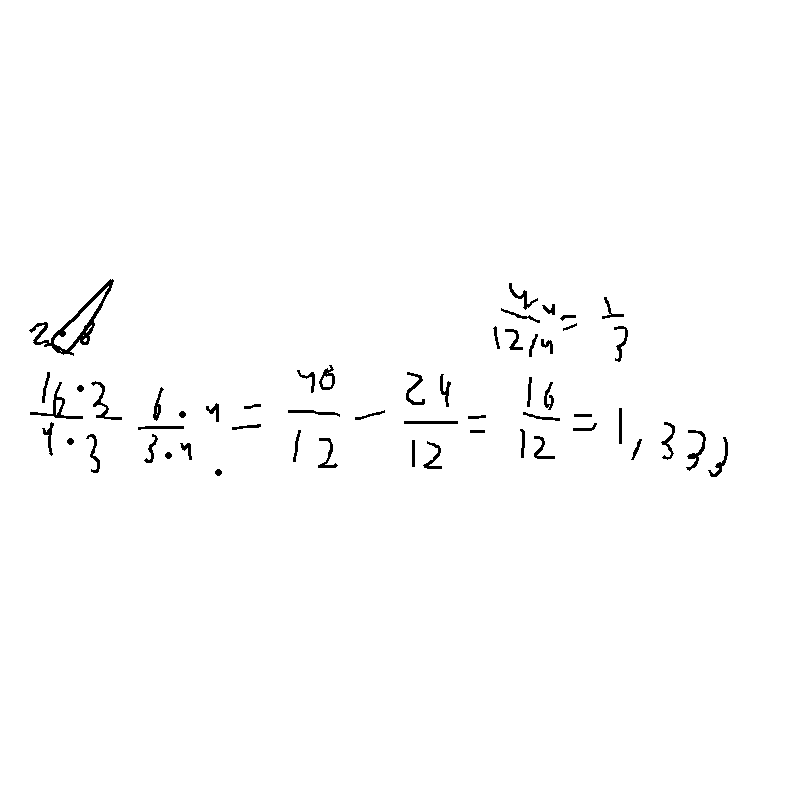 4/4 / 12/4 = 1/3
16·3 / 4·3 - 6·4 / 3·4 = 40 / 12 - 24 / 12 = 16 / 12 = 1,333